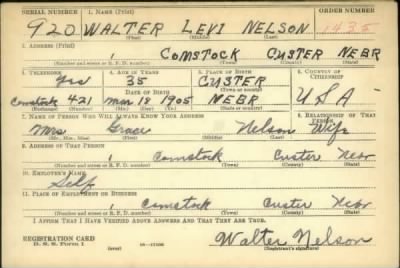 SERIAL NUMBER 1. NAME (Print) ORDER NUMBER
920 WALTER LEVI NELSON 1435
(First) (Middle) (Last)
2. ADDRESS (Print)
1 COMSTOCK CUSTER NEBR
(Number and street or R. F. D. number) (Town) (County) (State)
3. TELEPHONE 4. AGE IN YEARS 5. PLACE OF BIRTH 6. COUNTRY OF CITIZENSHIP
Yes 35 CUSTER
DATE OF BIRTH (Town or county)
Comstock 421 Mar 18 1905 NEBR USA
(Exchange) (Number) (Mo.) (Day) (Yr.) (State or country)
7. NAME OF PERSON WHO WILL ALWAYS KNOW YOUR ADDRESS 8. RELATIONSHIP OF THAT PERSON
Mrs Grace Nelson Wife
(Mr., Mrs., Miss) (First) (Middle) (Last)
9. ADDRESS OF THAT PERSON
1 Comstock Custer Nebr
(Number and street or R. F. D. number) (Town) (County) (State)
10. EMPLOYER'S NAME
Self
11. PLACE OF EMPLOYMENT OR BUSINESS
1 Comstock Custer Nebr
(Number and street or R. F. D. number) (Town) (County) (State)
I AFFIRM THAT I HAVE VERIFIED ABOVE ANSWERS AND THAT THEY ARE TRUE.
REGISTRATION CARD Walter Nelson
D. S. S. Form 1 (Registrant's signature)